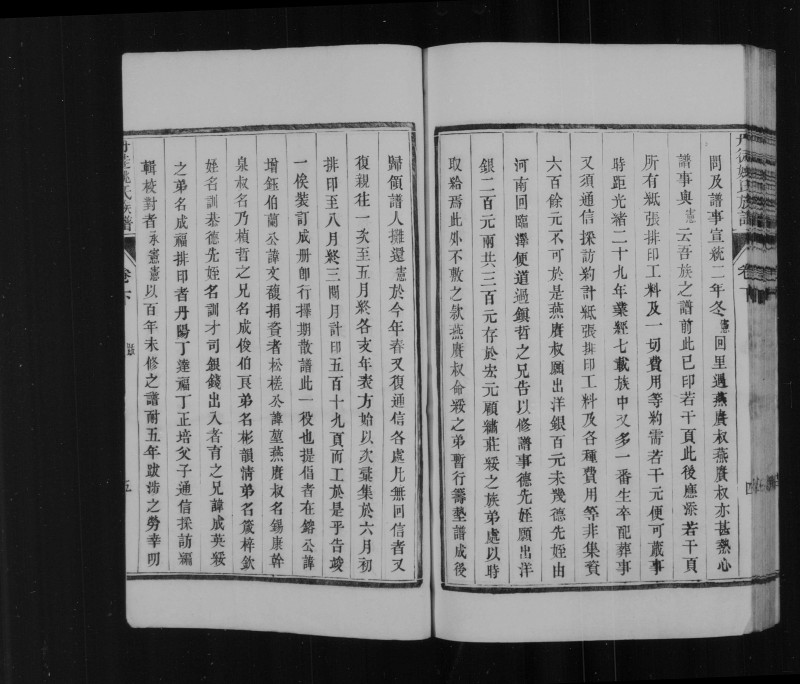 問及譜事宣統二年冬憲回里過燕賡叔燕賡叔亦甚熱心
譜事與憲云吾族之譜前此已印若干頁此後應添若干頁
所有紙張排印工料及一切費用等約需若干元便可蕆事
時距光緒二十九年業經七載族中又多一番生卒配葬事
又須通信採訪約計紙張排印工料及各種費用等非集資
六百餘元不可於是燕賡叔願出洋銀百元未幾德先姪由
河南回臨澤便道過鎭哲之兄告以修譜事德先姪願出洋
銀二百元兩共三百元存於宏元顧繡莊綏之族弟處以時
取給焉此外不敷之款燕賡叔命綏之弟暫行籌墊譜成後
歸領譜人攤還憲於今年春又復通信各處凡無回信者又
復親往一次至五月終各支年表方始以次彙集於六月初
排印至八月終三閱月計印五百十九頁而工於是乎告竣
一俟裝訂成册卽行擇期散譜此一役也提倡者在鎔公諱
增鈺伯蘭公諱文馥捐資者松槎公諱堃燕賡叔名錫康幹
臬叔名乃楨哲之兄名成俊伯頁弟名彬韻清弟名箴梓欽
姪名訓恭德先姪名訓才司銀錢出入者育之兄諱成英綏
之弟名成福排印者丹陽丁達福丁正培父子通信採訪編
輯校對者承憲憲以百年未修之譜耐五年跋涉之勞幸明
丹徒姚氏族譜
卷六
五